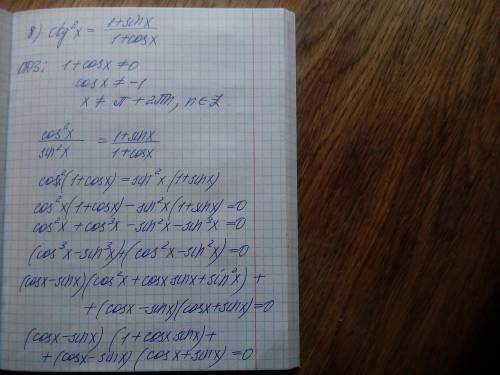 8) ctg²x = (1+sinx)/(1+cosx)
ОДЗ: 1+cosx ≠ 0
cosx ≠ -1
x ≠ π + 2πn, n ∈ Z
cos²x/sin²x = (1+sinx)/(1+cosx)
cos²(1+cosx) = sin²x(1+sinx)
cos²x(1+cosx) - sin²x(1+sinx) = 0
cos²x + cos³x - sin²x - sin³x = 0
(cos³x - sin³x) + (cos²x - sin²x) = 0
(cosx - sinx)(cos²x + cosx sinx + sin²x) +
+ (cosx - sinx)(cosx + sinx) = 0
(cosx - sinx) (1 + cosx sinx) +
+ (cosx - sinx) (cosx + sinx) = 0